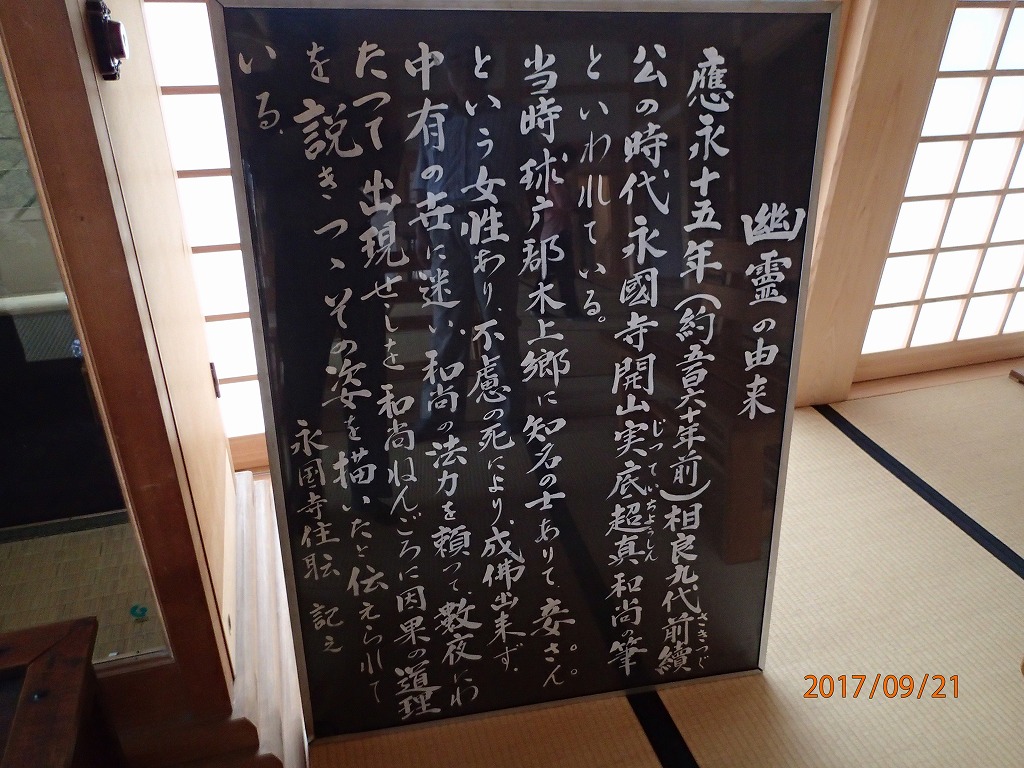 幽霊の由来
應永十五年(約五百六十年前)相良九代前續
さきつぐ
公の時代永國寺開山実底超真和尚の筆
じってい
ちょうしん
といわれている。
当時球广郡木上郷に知名の士ありて妾さん
という女性あり、不慮の死により、成佛出来ず、
中有の世に迷い、和尚の法力を頼って、数夜にわ
たって出現せしを和尚ねんごろに因果の道理
を説きつゝその姿を描いたと伝えられて
いる、
永国寺住職 記之
2017/09/21